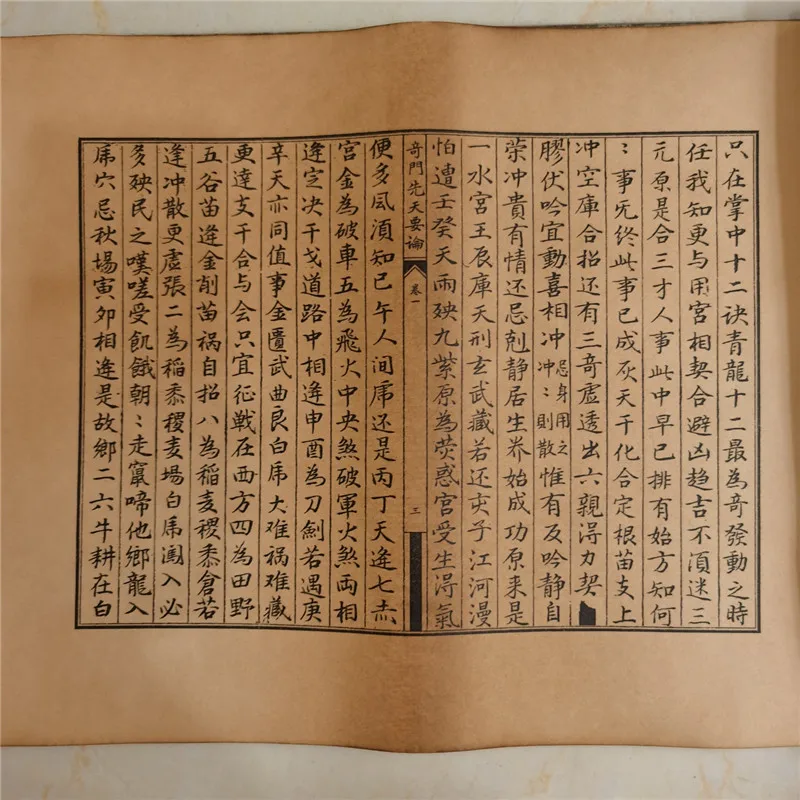 只在掌中十二诀青龍十二最為奇發動之時
任我知更与用宮相契合避凶趋吉不湏迷三
元原是合三才人事此中早已排有始方知何
〻事旡终此事已成灰天干化合定根苗支上
冲空庫合招还有三奇虚透出六親得力契
膠伏吟宜動喜相冲忌身用之冲〻則散惟有反吟静自
荣冲貴有情还忌剋静居生养始成功原来是
一水宮王辰庫天刑玄武藏若还夾子江河漫
怕遭壬癸天雨殃九紫原為荧惑宮受生淂氣
奇門先天要論 卷一 三
便多凨湏知巳午人间席还是丙丁天逢七赤
宮金為破車五為飛火中央煞破軍火煞両相
逢定决干戈道路中相逢申酉為刀劍若遇庚
辛天亦同值事金匱武曲良白席大难禍难藏
更逹支干合与会只宜征戰在西方四為田野
五谷苗逢金削苗禍自招八為稲麦稷黍倉若
逢冲散更虚張二為稻黍稷麦場白席圊入必
多殃民之嘆嗟受飢餓朝〻走竄啼他鄉龍入
席穴忌秋場寅夘相逢是故鄉二六牛耕在白